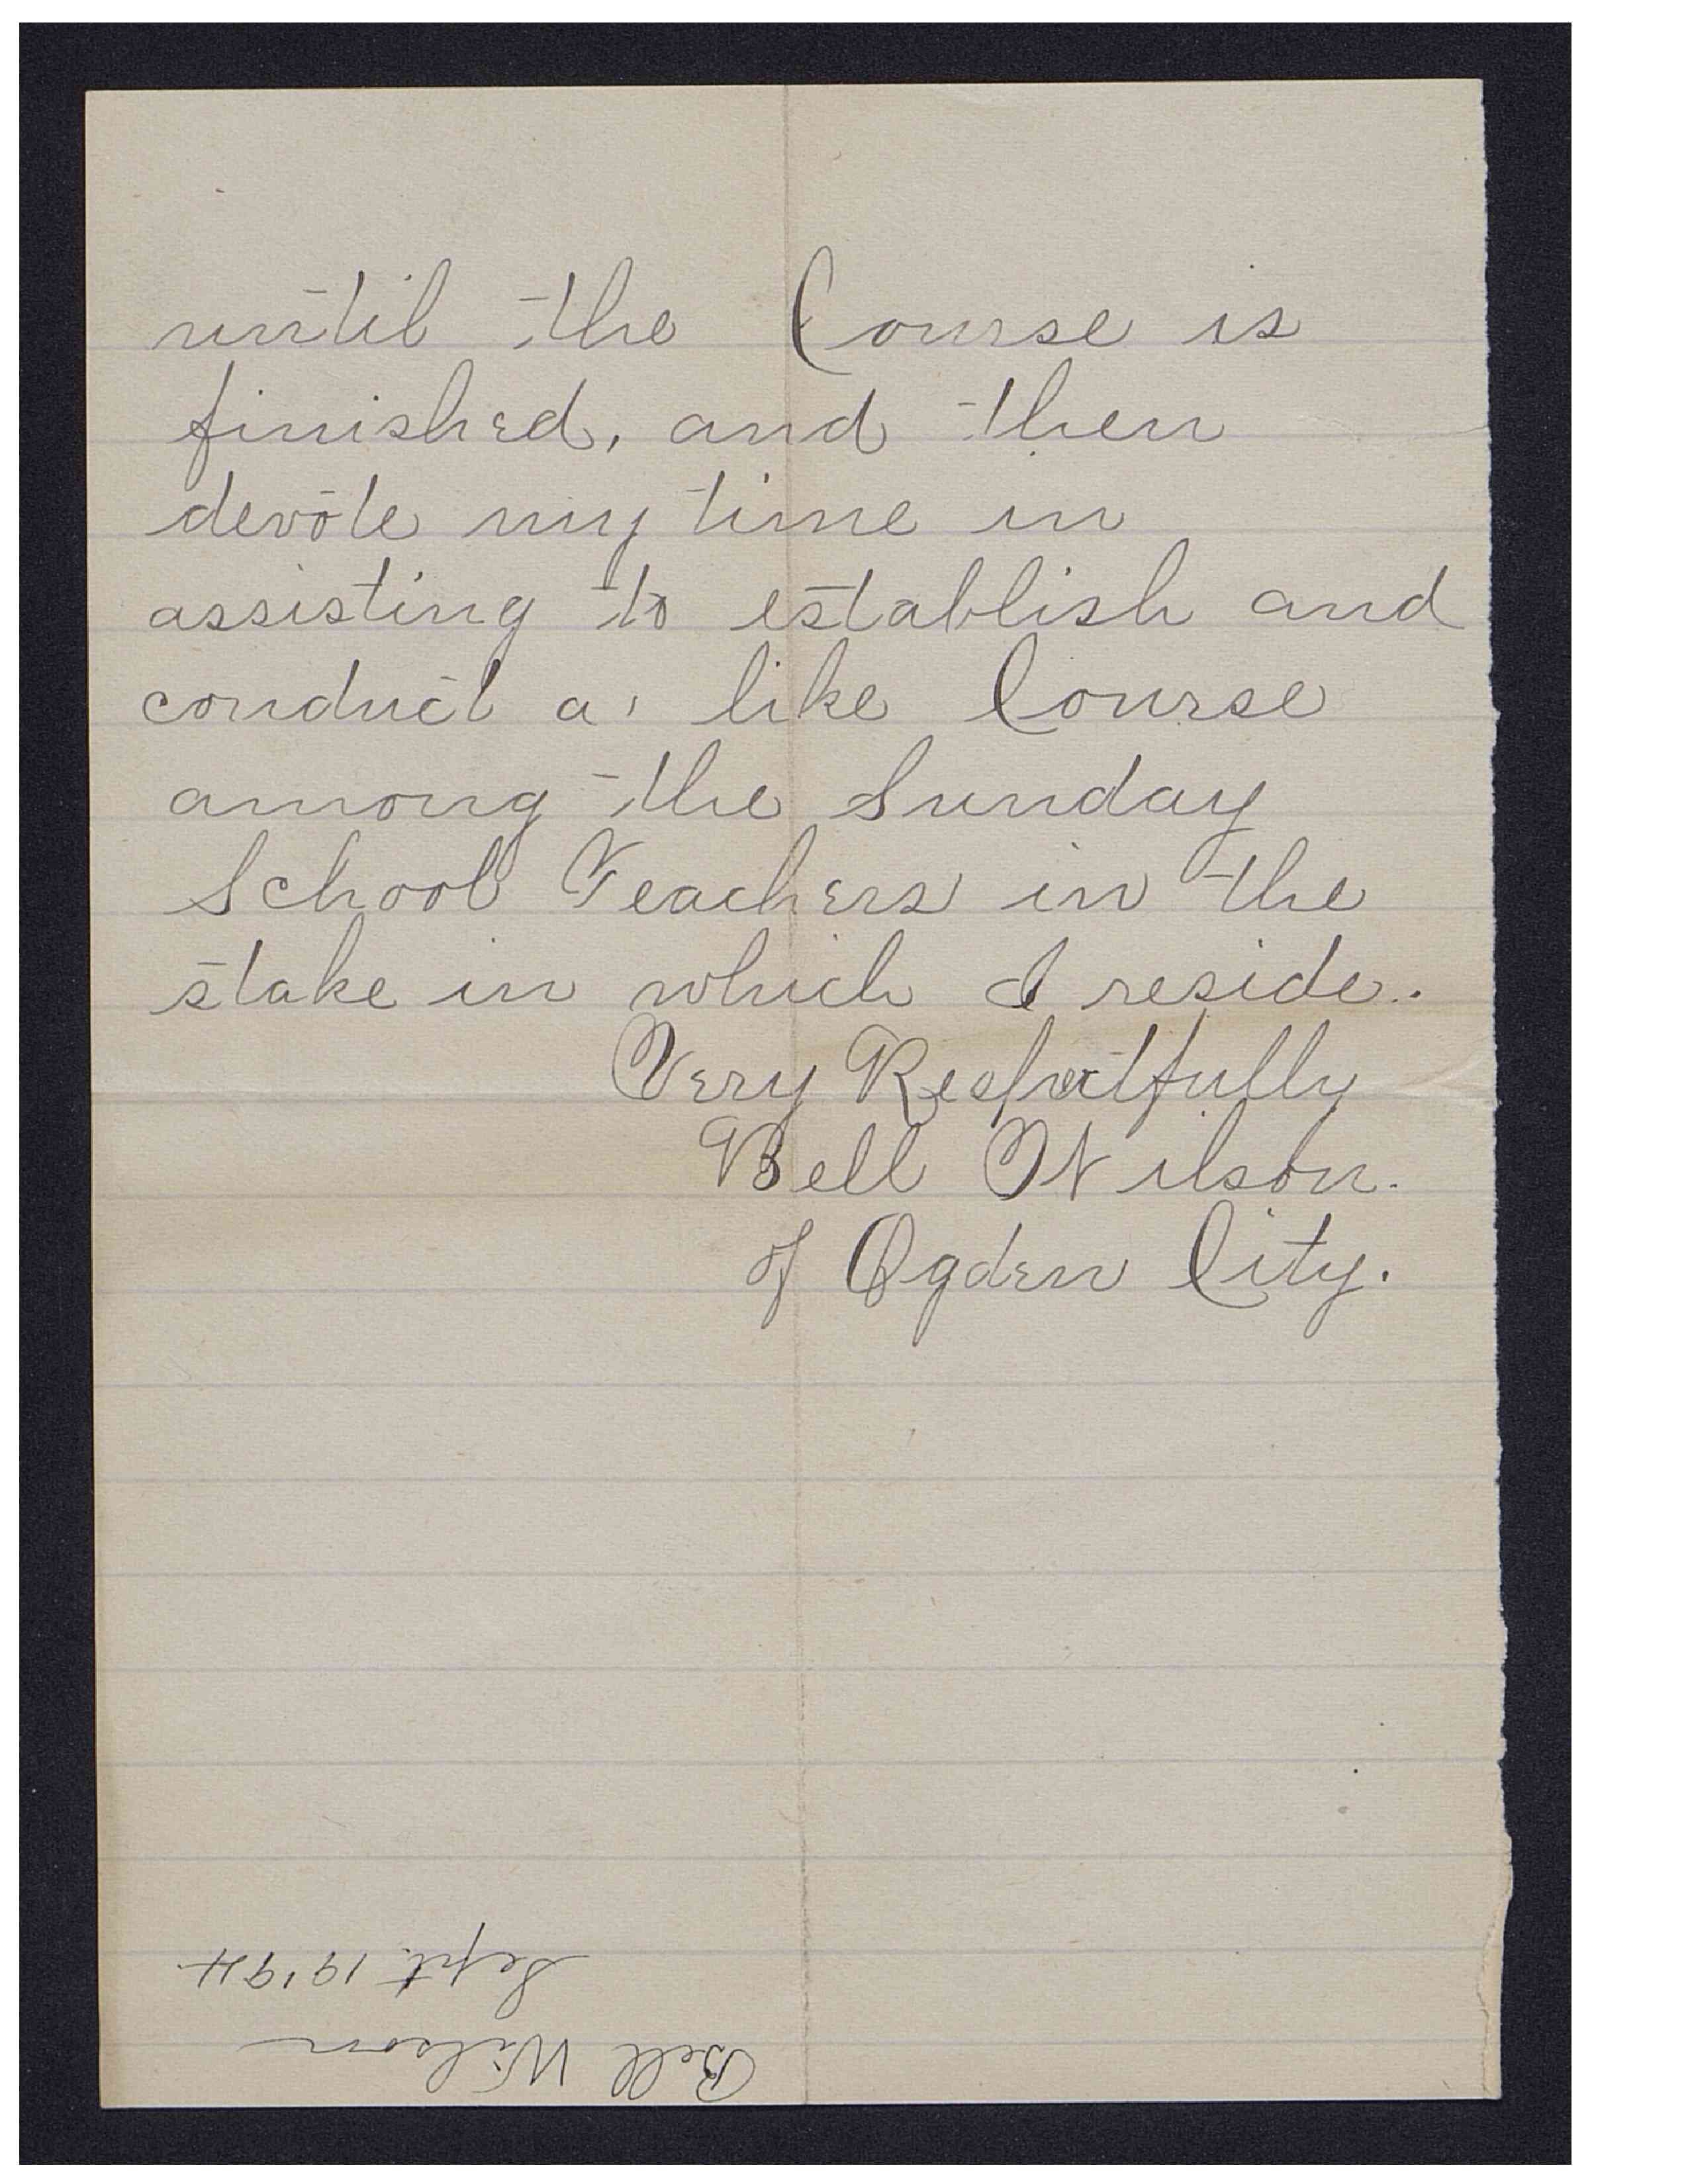 until the Course is
finished, and then
devote my time in
assisting to establish and
conduct a like Course
among the Sunday
School Teachers in the
stake in which I reside.
Very Respectfully
Bell Wilson.
of Ogden City.
Bell Wilson
Sept. 19 '94